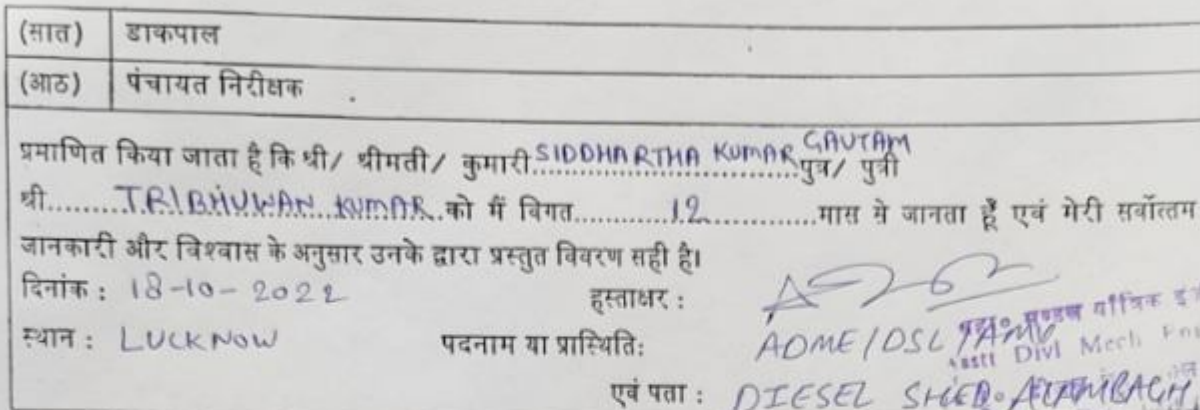 (सात) डाकपाल
(आठ) पंचायत निरीक्षक
प्रमाणित किया जाता है कि श्री/ श्रीमती/ कुमारी SIDDHARTHA KUMAR GAUTAM पुत्र/ पुत्री
श्री......... TRIBHUWAN KUMAR ..को मैं विगत............12...............मास से जानता हूँ एवं मेरी सर्वोत्तम
जानकारी और विश्वास के अनुसार उनके द्वारा प्रस्तुत विवरण सही है।
दिनांक : 18-10-2022 हस्ताक्षर :
स्थान : LUCKNOW पदनाम या प्रास्थितिः ADME/DSL/AMV
मण्डल यांत्रिक
Asstt Divl Mech
एवं पता : DIESEL SHED. ALAMBAGH,